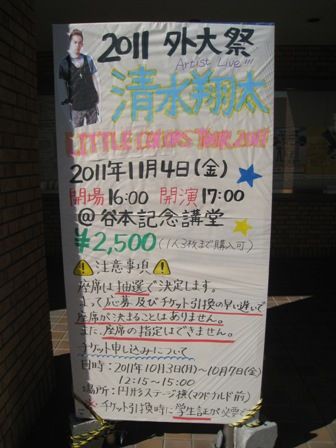 2011 外大祭
Artist Live!!!
清水翔太
LITTLE COLORS TOUR 2011
2011年11月4日(金)
開場16:00 開演17:00
@谷本記念講堂
¥2,500(1人3枚まで購入可)
注意事項
座席は抽選で決定します。
よって応募及びチケット引換の早い遅いで
座席が決まることはありません。
また、座席の指定はできません。
チケット申し込みについて
日時:2011年10月3日(月)~10月7日(金)
12:15~15:00
場所:円形ステージ横(マクドナルド前)
チケット引換時に学生証が必要